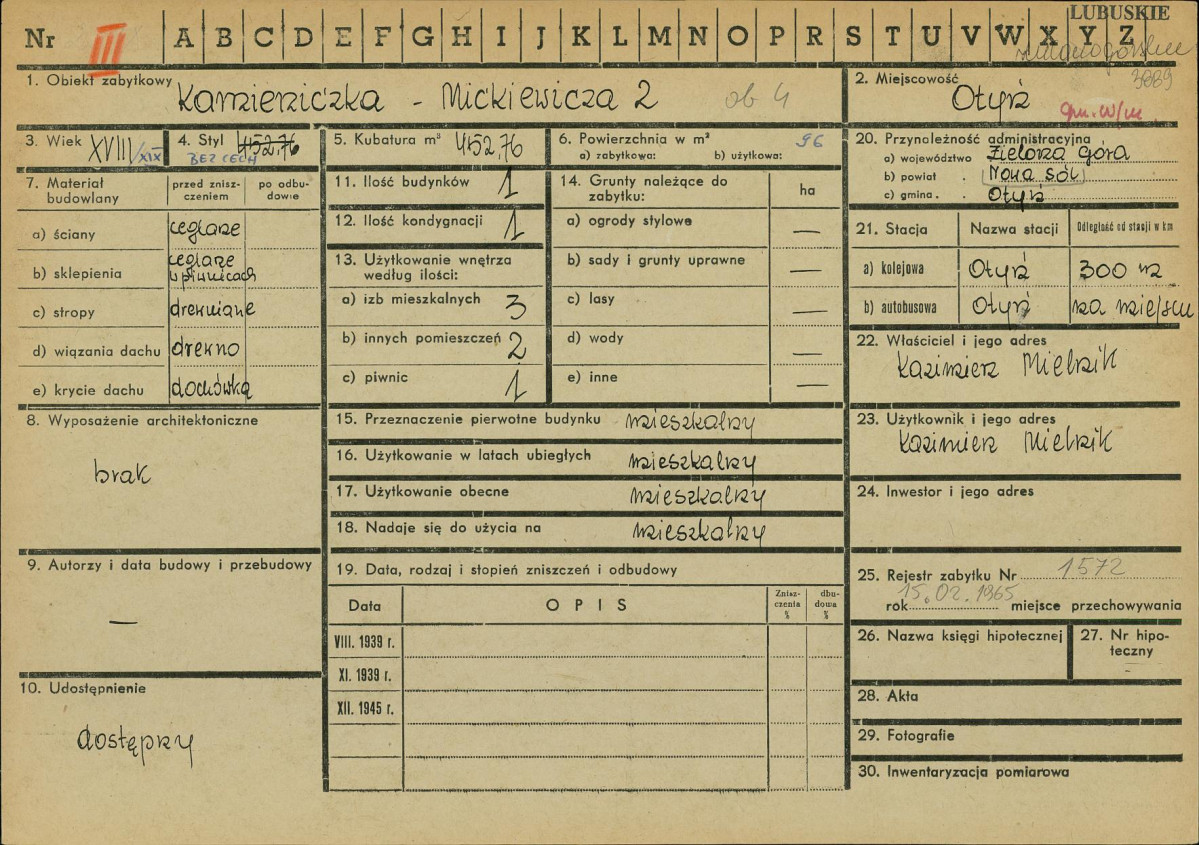 LUBUSKIE
Nr III A B C D E F G H I J K L M N O P R S T U V W X Y Z
zielonogórskie
3889
1. Obiekt zabytkowy
Kamieniczka - Mickiewicza 2 ob 4
2. Miejscowość
Otyń
gm. w/m
3. Wiek XVIII/XIX
4. Styl 452,76
BEZ CECH
5. Kubatura m³ 452,76
6. Powierzchnia w m² 96
a) zabytkowa: b) użytkowa:
7. Materiał budowlany
przed znisz-
czeniem
po odbu-
dowie
a) ściany ceglane
b) sklepienia ceglane
w piwnicach
c) stropy drewniane
d) wiązania dachu drewno
e) krycie dachu dachówka
8. Wyposażenie architektoniczne
brak
9. Autorzy i data budowy i przebudowy
—
10. Udostępnienie
dostępny
11. Ilość budynków 1
12. Ilość kondygnacji 1
13. Użytkowanie wnętrza
według ilości:
a) izb mieszkalnych 3
b) innych pomieszczeń 2
c) piwnic 1
14. Grunty należące do
zabytku:
ha
a) ogrody stylowe —
b) sady i grunty uprawne —
c) lasy —
d) wody —
e) inne —
15. Przeznaczenie pierwotne budynku mieszkalny
16. Użytkowanie w latach ubiegłych mieszkalny
17. Użytkowanie obecne mieszkalny
18. Nadaje się do użycia na mieszkalny
19. Data, rodzaj i stopień zniszczeń i odbudowy
Data OPIS
Znisz-
czenia
%
dbu-
dowa
%
VIII. 1939 r.
XI. 1939 r.
XII. 1945 r.
20. Przynależność administracyjna
a) województwo Zielona Góra
b) powiat . Nowa Sól
c) gmina . . Otyń
21. Stacja Nazwa stacji Odległość od stacji w km
a) kolejowa Otyń 300 m
b) autobusowa Otyń na miejscu
22. Właściciel i jego adres
Kazimierz Mielnik
23. Użytkownik i jego adres
Kazimierz Mielnik
24. Inwestor i jego adres
25. Rejestr zabytku Nr 1572
15.02.1965
rok miejsce przechowywania
26. Nazwa księgi hipotecznej
27. Nr hipo-
teczny
28. Akta
29. Fotografie
30. Inwentaryzacja pomiarowa